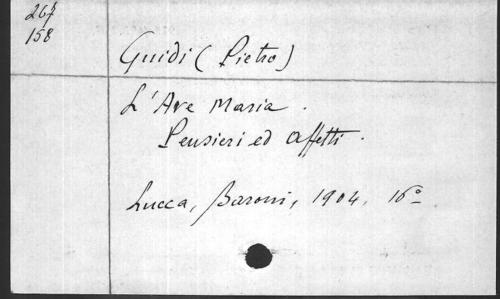 267
158
Guidi (Pietro)
L'Ave Maria.
Pensieri ed affetti.
Lucca, Baroni, 1904, 16°